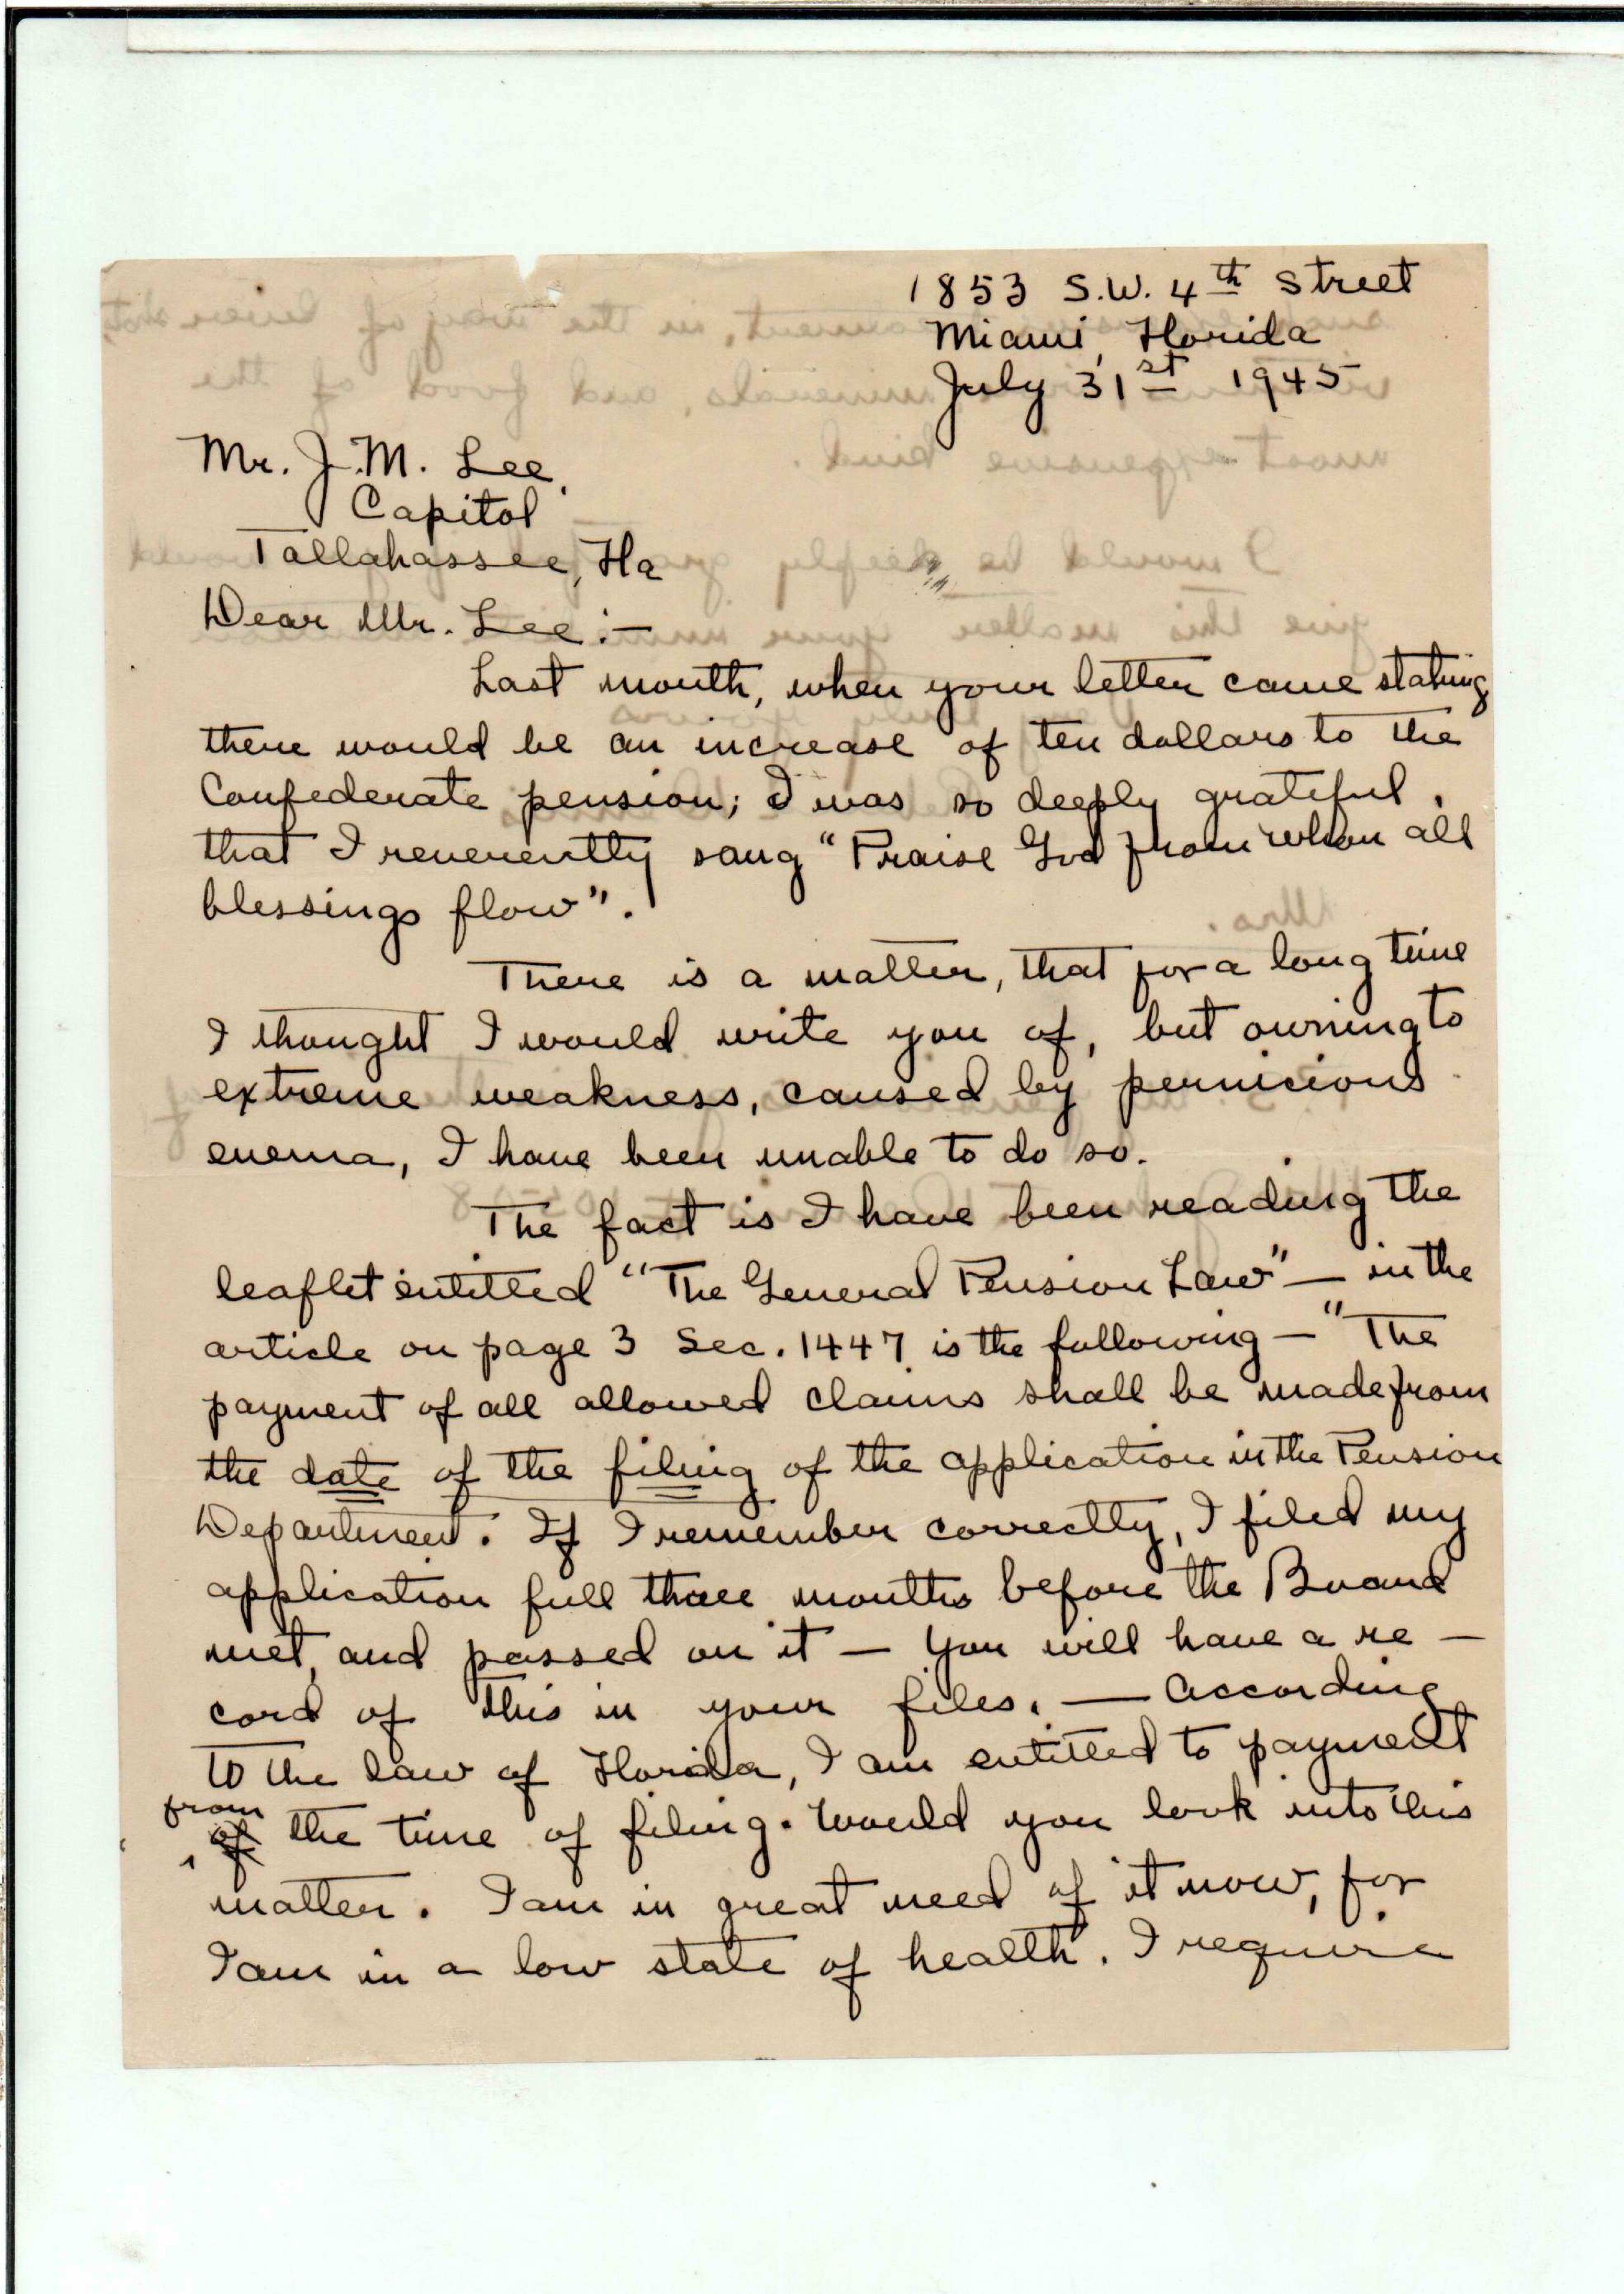 1853 S.W. 4th Street
Miami, Florida
July 31st 1945
Mr. J.M. Lee,
Capitol
Tallahassee, Fla
Dear Mr. Lee:—
Last month, when your letter came stating
there would be an increase of ten dollars to the
Confederate pension; I was so deeply grateful,
that I reverently sang "Praise God from whom all
blessings flow".
There is a matter, that for a long time
I thought I would write you of, but owning to
extreme weakness, caused by pernicious
enema, I have been unable to do so.
The fact is I have been reading the
leaflet entitled "The General Pension Law" — in the
article on page 3 Sec. 1447 is the following — "The
payment of all allowed claims shall be made from
the date of the filing of the application in the Pension
Department. If I remember correctly, I filed my
application full three months before the Board
met, and passed on it — You will have a re —
cord of this in your files. — According
to the law of Florida, I am entitled to payment
from
of the time of filing. Would you look into this
matter. I am in great need of it now, for
I am in a low state of health. I require